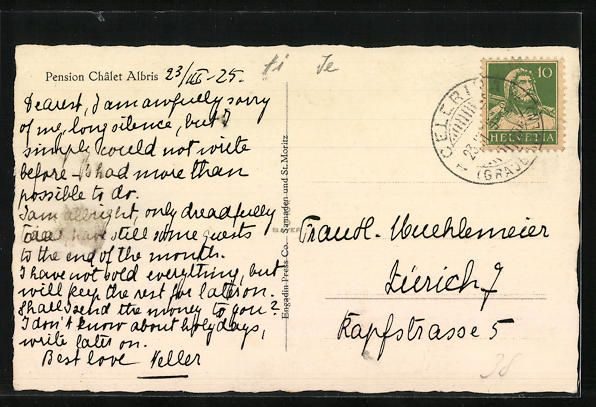 Pension Châlet Albris 23/III-25.
Dearest, I am awfully sorry
of me, long silence, but I
simple could not write
before - I had more than
possible to do.
I am allright, only dreadfully
have still some guests
to the end of the month.
I have not sold everything, but
will keep the rest for later on.
Shall I send the money to you?
I don't know about holydays,
write later on.
Best love Neller
Engadin Press Co., Samaden und St. Moritz.
10
HELVETIA
CELERI
(GRAUB
Traudl Muehlemeier
Zürich 7
Kapfstrasse 5
38